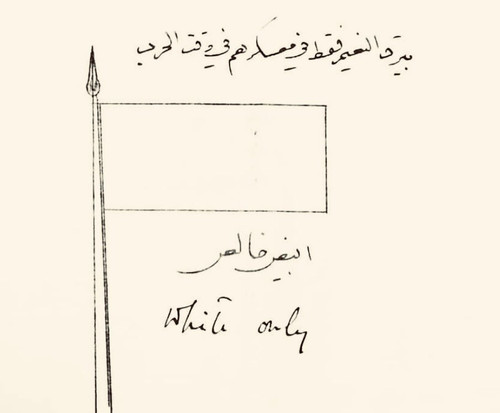 بيرق النعيم فقط في معسكرهم في وقت الحرب
ابيض خالص
White only